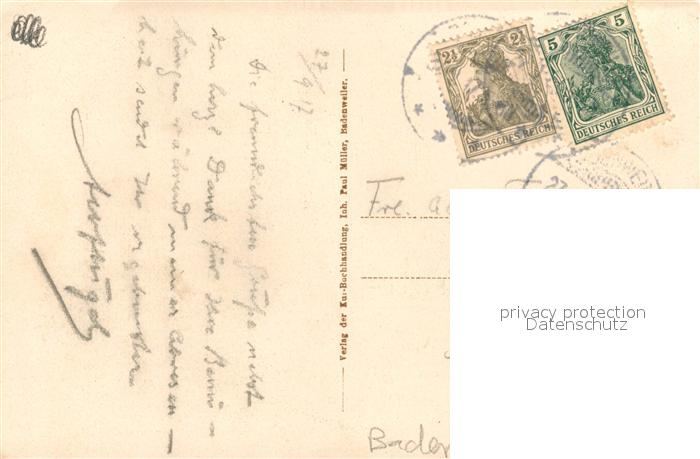 27/9 17
Die freundlichsten Grüße nebst
dem herzl. Dank für Ihre Bemü-
hungen während meiner Abwesen-
heit sendet Ihr ergebenster
Verlag der Kur-Buchhandlung, Inh. Paul Müller, Badenweiler.
2½ 2½
DEUTSCHES REICH
5 5
DEUTSCHES REICH
27
Frl.
Baden
privacy protection
Datenschutz